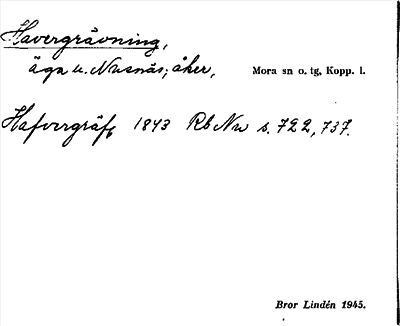 Havergrävning,
äga u. Nusnäs; åker, Mora sn o. tg, Kopp. l.
Hafvergräf, 1843 Rb Nu s. 722, 737.
Bror Lindén 1945.